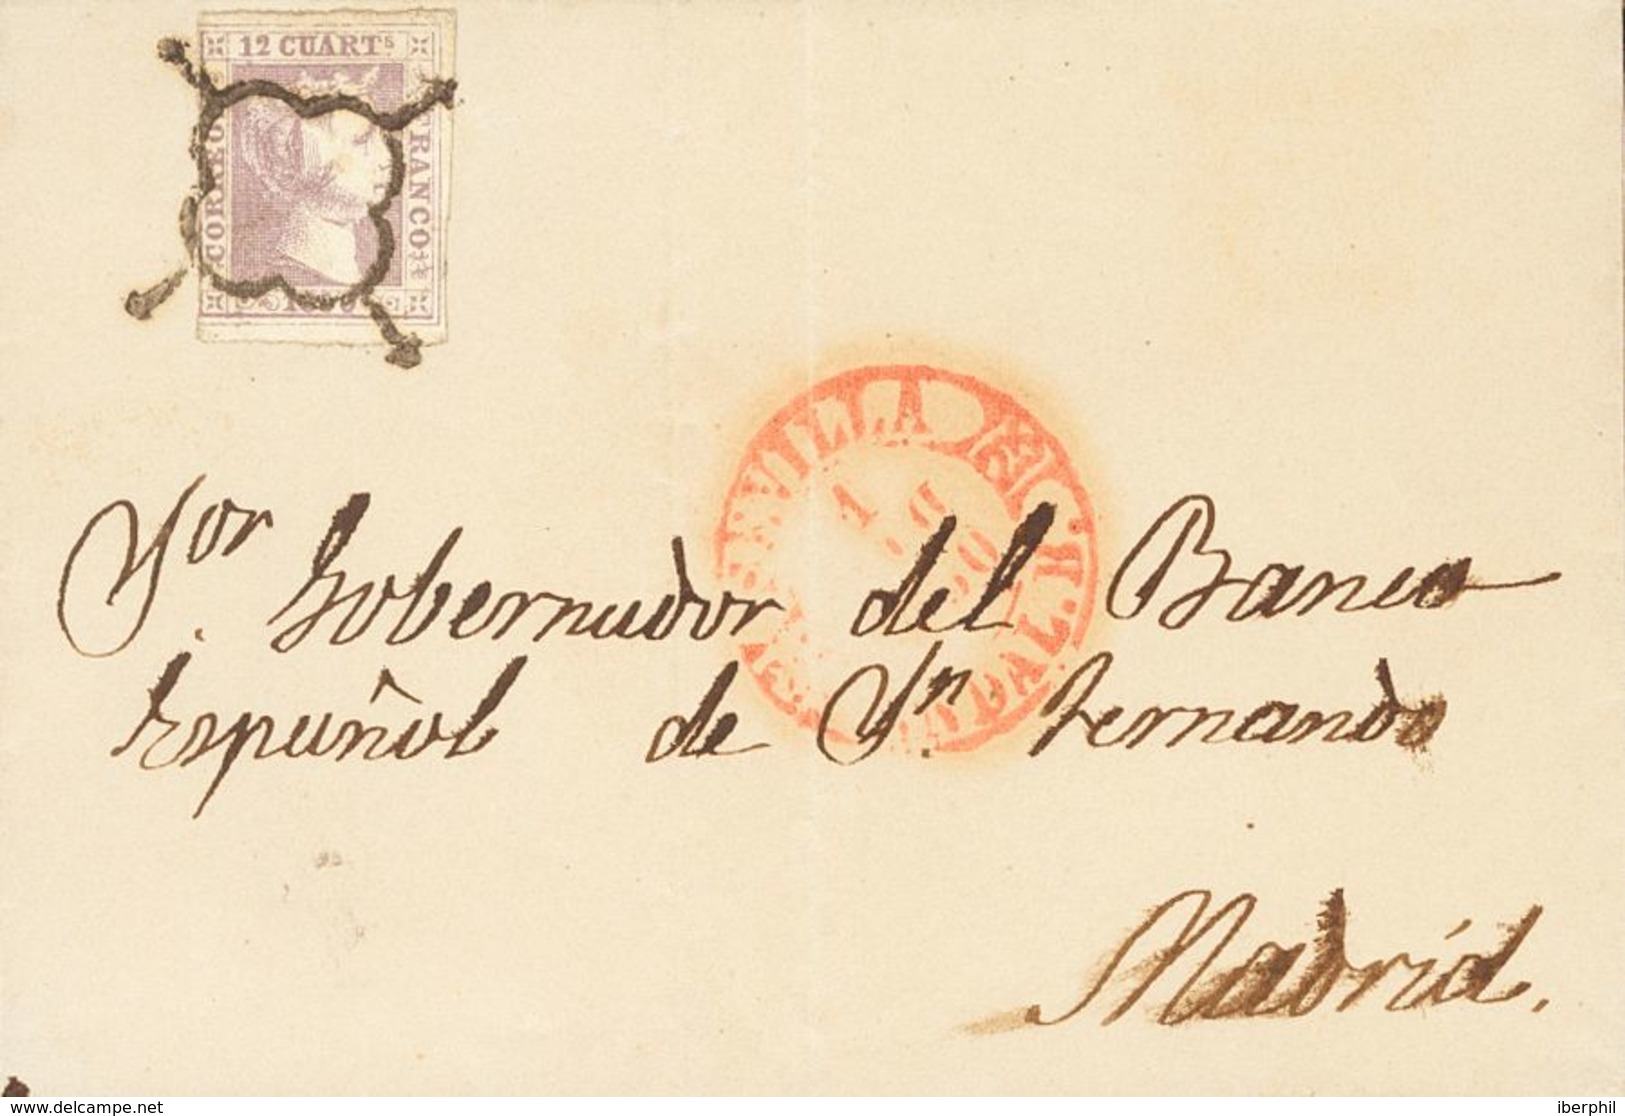 12 CUARTS
CORREOS
FRANCO
1850
SEVILLA
ANDAL. B.
1
Sor Gobernador del Banco
Español de Sn. Fernando
Madrid.
www.delcampe.net
iberphil